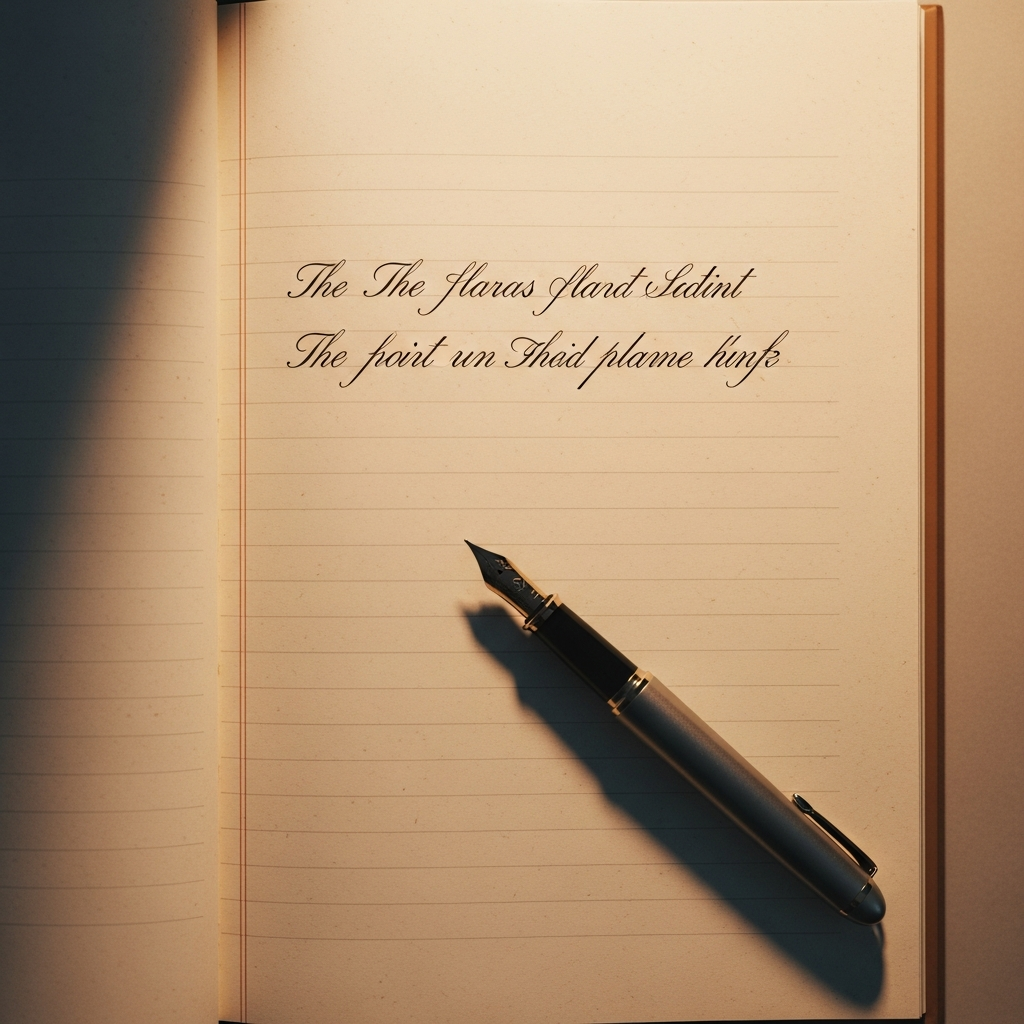 The The flaras flard Sedint
The poirt un Thaid plame hinfz